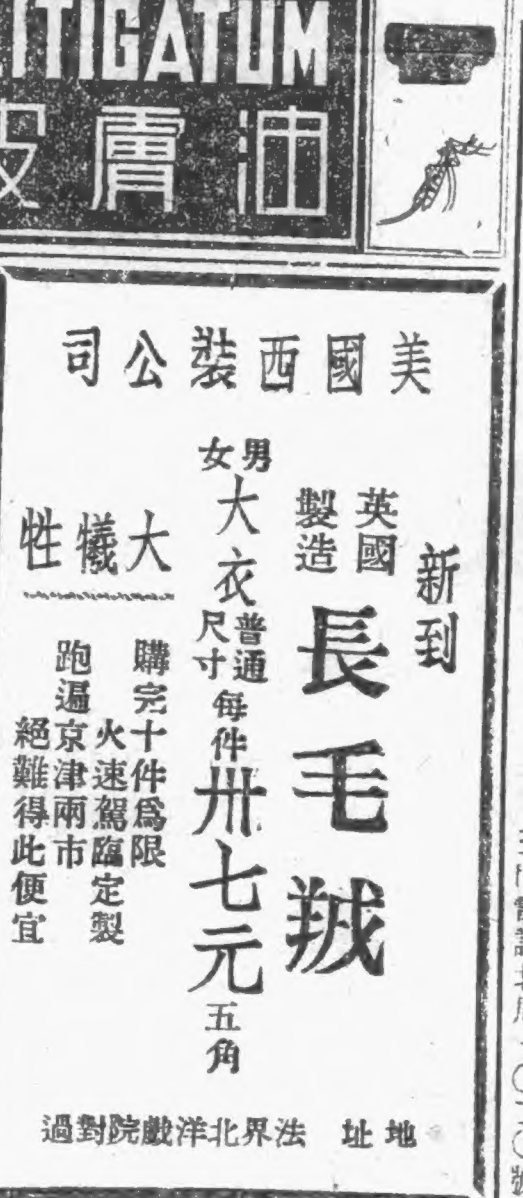 ITIGATUM
膚油
美國西裝公司
新到
英國製造
長毛羢
男女大衣普通尺寸每件卅七元五角
大犧牲
購完十件為限
火速駕臨定製
跑遍京津兩市
絕難得此便宜
地址 法界北洋戲院對過